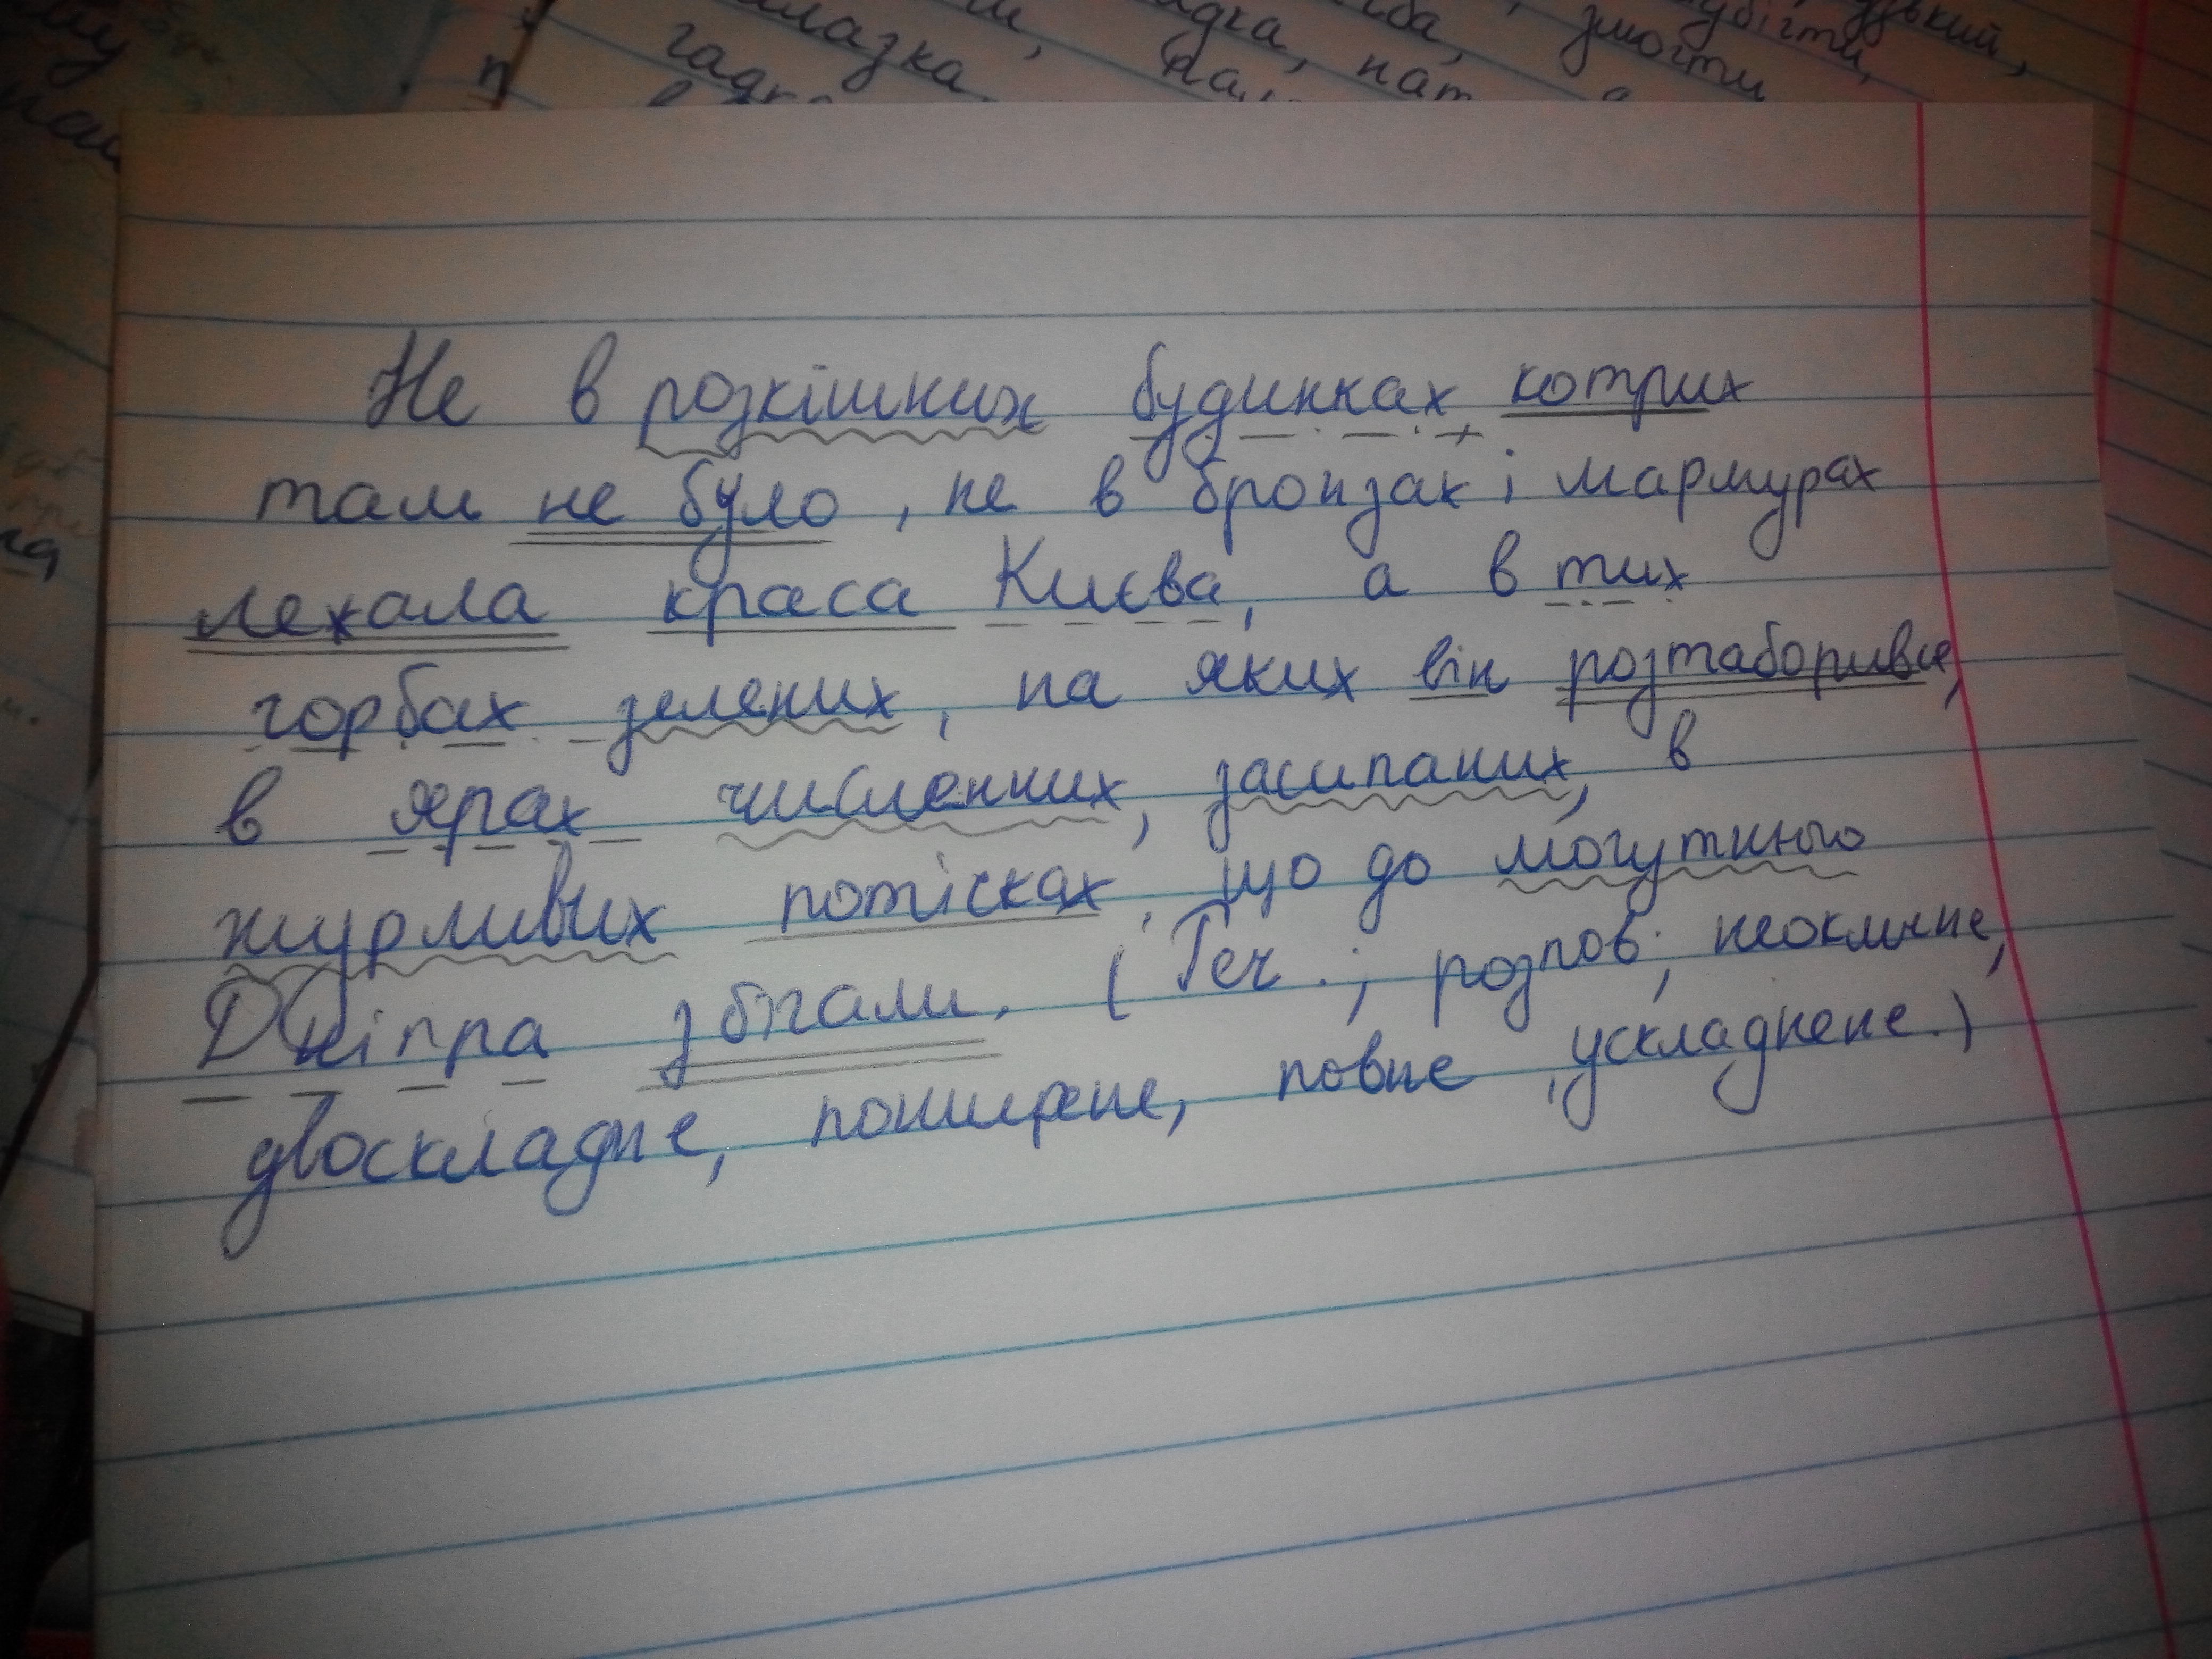 лазка,
гадка, нат
змогти
Не в розкішних будинках котрих
там не було, не в бронзах і мармурах
лежала краса Києва, а в тих
горбах зелених, на яких він розтаборився,
в ярах численних, засипаних, в
журливих потісках, що до могутнього
Дніпра збігали. (Реч.; розпов; неокличне,
двоскладне, поширене, повне, ускладнене.)